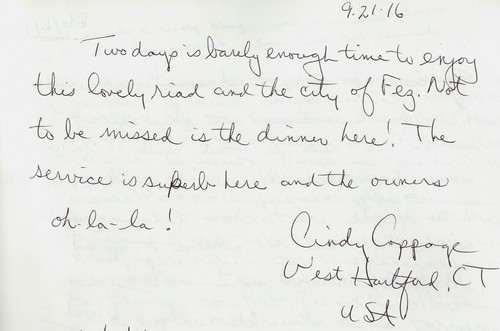 9.21.16
Two days is barely enough time to enjoy
this lovely riad and the city of Fez. Not
to be missed is the dinner here! The
service is superb here and the owners
oh-la-la!
Cindy Coppage
West Hartford, CT
USA